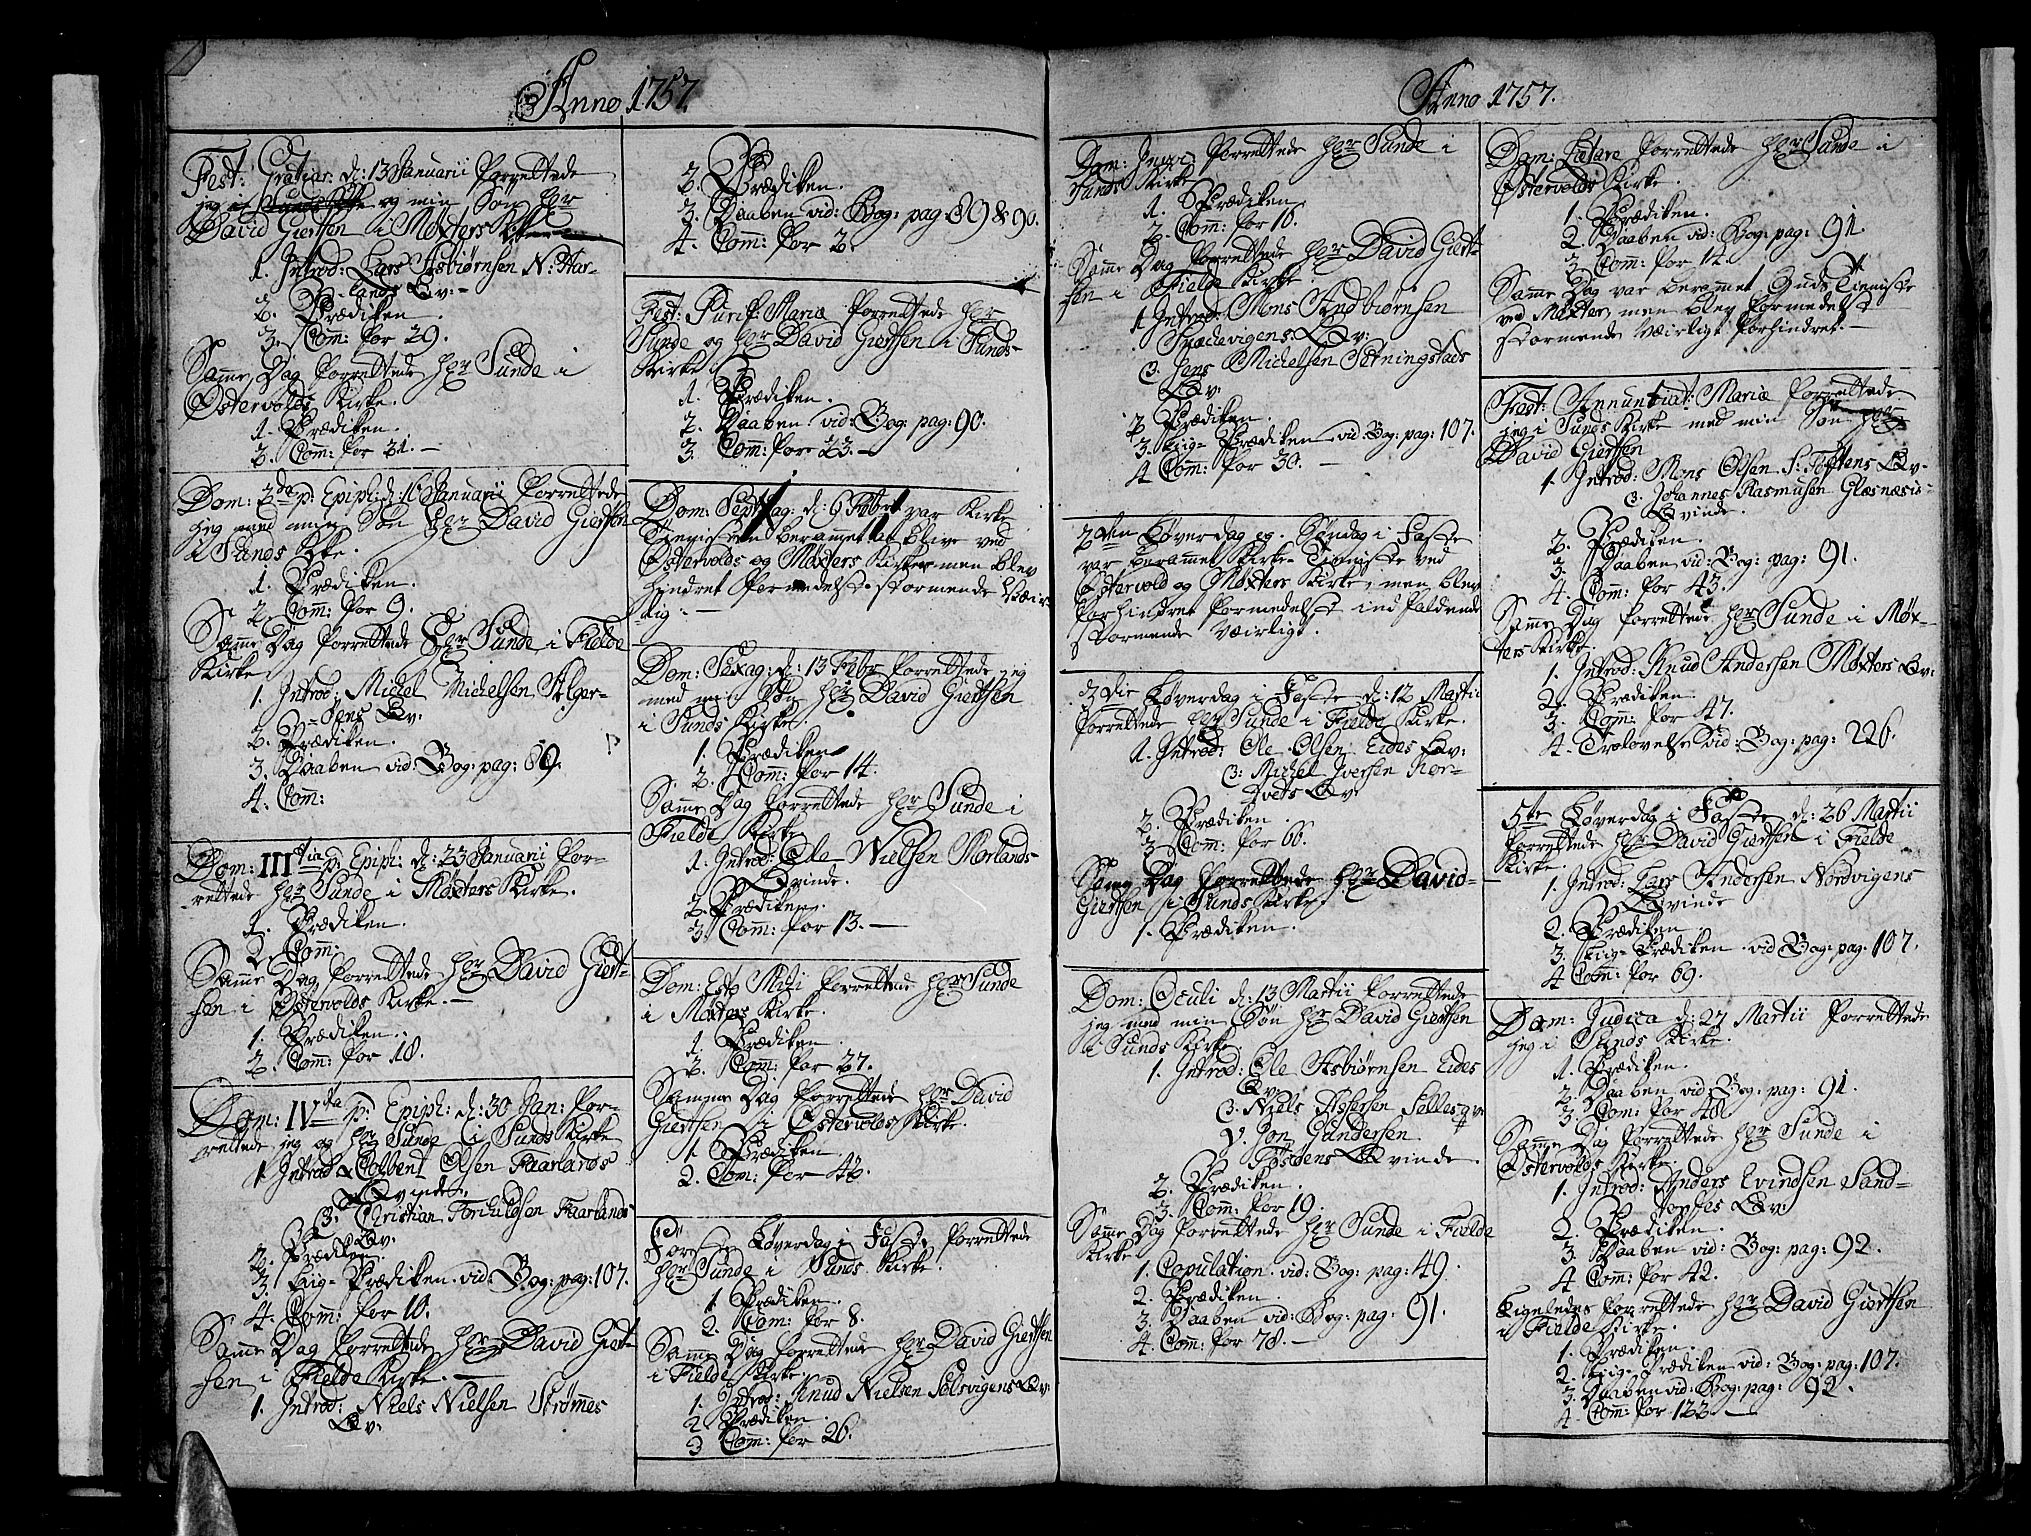 Anno 1757.
Fest: Gratiar: d: 13 Januarii forrettede
jeg og min Søn hr
David Giertsen i Møxters Kirke
1. Introd: Lars Asbiørnsen N: Har-
lands Qv:
2. Prædiken
3. Com̃: for 29.
Sam̃e Dag forrettede hr Sunde i
Østervolds Kirke.
1. Prædiken.
2. Com̃: for 21.
Dom: 2da p: Epiph: d: 16 Januarii forrettede
jeg med min Søn hr David Giertsen
i Sunds Kirke.
1. Prædiken.
2. Com̃: for 9.
Sam̃e Dag forrettede hr Sunde i Fielde
Kirke
1. Introd: Michel Michelsen Alger-
Qv:
2. Prædiken.
3. Daaben vid: Bog: pag: 89.
4. Com̃:
Dom: IIItia p: Epiph: d: 23 Januarii for-
rettede hr Sunde i Møxters Kirke.
1. Prædiken.
2. Com̃:
Sam̃e Dag forrettede hr David Giert-
sen i Østervolds Kirke.
1. Prædiken.
2. Com̃: for 18.
Dom: IVta p: Epiph: d: 30 Jan: for-
rettede jeg og hr Sunde i Sunds Kirke
1. Introd: Colbent Olsen Faarlands
Qvinde
3. Christian Torchildsen Faarlands
Qv:
2. Prædiken.
3. Liig-Prædiken vid: Bog: pag: 107.
4. Com̃: for 10.
Sam̃e Dag forrettede hr David Giert-
sen i Fielde Kirke.
1. Introd: Niels Nielsen Strømes
Qv:
2. Prædiken.
3. Daaben vid: Bog: pag: 89 & 90.
4. Com̃: for 2.
Fest: Purif: Mariæ forrettede hr
Sunde og hr David Giertsen i Sunds
Kirke
1. Prædiken.
2. Daaben vid: Bog: pag: 90.
3. Com̃: for 23.
Dom: Septuag: d: 6 Febr var Kirke
Tienisten berammet at blive ved
Østervolds og Møxters Kirker men blev
hindret formedelst stormende Væir-
lig.
Dom: Sexag: d: 13 Febr forrettede jeg
med min Søn hr David Giertsen
i Sunds Kirke.
1. Prædiken
2. Com̃: for 14.
Sam̃e Dag forrettede hr Sunde i
Fielde Kirke
1. Introd: Ole Nielsen Morlands
Qvinde.
2. Prædiken.
3. Com̃: for 13.
Dom: Esto Mihi forrettede hr Sunde
i Møxters Kirke.
1. Prædiken.
2. Com̃: for 27.
Samme Dag forrettede hr David
Giertsen i Østervolds Kirke.
1. Prædiken
2. Com: for 48.
Første Løverdag i Faste forrettede
hr Sunde i Sunds Kirke.
1. Prædiken.
2. Com: for 8.
Sam̃e Dag forrettede hr David Giertsen
i Fielde Kirke.
1. Introd: Knud Nielsen Solsvigens Qv:
2. Prædiken.
3. Com̃: for 26.
Anno 1757.
Dom: Invoc: forrettede hr Sunde i
Sunds Kirke
1. Prædiken.
2. Com̃: for 10.
Sam̃e Dag forrettede hr David Giert-
sen i Fielde Kirke
1. Introd: Mons Andbiørnsen
Snædevigens Qv:
3. Jens Michelsen Setningstads
Qv:
2. Prædiken.
3. Liig-Prædiken vid: Bog: pag: 107.
4. Com: for 30.
2den Løverdag og Søndag i Faste
var berammet Kirke-Tieniste ved
Østervold og Møxters Kirke, men blev
forhindret formedelst indfaldende
stormende Væirligt.
3die Løverdag i Faste d: 12 Martii
forrettede hr Sunde i Fielde Kirke.
1. Introd: Ole Olsen Eides Qv:
3. Michel Iversen Kor-
Qv:
2. Prædiken.
3. Com̃: for 66.
Sam̃e Dag forrettede hr David
Giertsen i Sunds Kirke
1. Prædiken.
Dom: Oculi d: 13 Martii forrettede
jeg med min Søn hr David Giertsen
i Sunds Kirke.
1. Introd: Ole Asbiørnsen Eides
Qv:
3. Niels Assersen Selles qv
Jon Gundersen
Qvinde.
2. Prædiken.
3. Com̃: for 19.
Sam̃e Dag forrettede hr Sunde i Fielde
Kirke
1. Copulation vid: Bog: pag: 49.
2. Prædiken.
3. Daaben vid: Bog: pag: 91.
4. Com̃: for 78.
Dom: Lætare forrettede hr Sunde i
Østervolds Kirke.
1. Prædiken.
2. Daaben vid: Bog: pag: 91.
3. Com̃: for 14.
Sam̃e Dag var berammet Guds Tieniste
ved Møxter, men blev formedelst
stormende Væirligt forhindret.
Fest: Annuntiat: Mariæ forrettede
jeg i Sunds Kirke med min Søn hr
David Giertsen
1. Introd: Mons Olsen S: Toftens Qv.
3. Johannes Rasmusen Glæsnæsis
Qvinde.
2. Prædiken.
3. Daaben vid: Bog: pag: 91.
4. Com̃: for 43.
Sam̃e Dag forrettede hr Sunde i Møx-
ters Kirke.
1. Introd: Knud Andersen Møxters Qv:
2. Prædiken.
3. Com̃: for 47.
4. Trolovelse vid: Bog: pag: 226.
5te Løverdag i Faste d: 26 Martii
forrettede hr David Giertsen i Fielde
Kirke
1. Introd: Lars Andersen Nordvigens
Qvinde
2. Prædiken
3. Liig-Prædiken vid Bog: pag: 107.
4. Com̃: for 69.
Dom: Judica d: 27 Martii forrettede
jeg i Sunds Kirke.
1. Prædiken.
2. Daaben vid: Bog: pag: 91.
3. Com̃: for 48.
Sam̃e Dag forrettede hr Sunde i
Østervolds Kirke
1. Introd: Anders Evindsen Sand-
tordes Qv:
2. Prædiken.
3. Daaben vid: Bog: pag: 92.
4. Com̃: for 42.
Ligeledes forrettede hr David Giertsen
i Fielde Kirke.
1. Prædiken.
2. Liig-Prædiken vid: Bog: pag: 107.
3. Daaben vid: Bog: pag: 92.
4. Com̃: for 122.